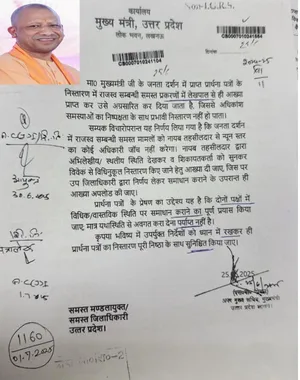 Non-I.G.R.S.
कार्यालय
मुख्य मंत्री, उत्तर प्रदेश
लोक भवन, लखनऊ
CB00007010241104
CB00007010241104
मा0 मुख्यमंत्री जी के जनता दर्शन में प्राप्त प्रार्थना पत्रों के
निस्तारण में राजस्व सम्बन्धी समस्त प्रकरणों में लेखपाल से ही आख्या
प्राप्त कर उसे अग्रसारित कर दिया जाता है, जिससे अधिकांश
समस्याओं का निष्पक्षता के साथ प्रभावी निस्तारण नहीं हो पाता।
सम्यक विचारोपरान्त यह निर्णय लिया गया है कि जनता दर्शन
में राजस्व सम्बन्धी समस्त मामलों को नायब तहसीलदार से न्यून स्तर
का कोई अधिकारी जाँच नहीं करेगा। नायब तहसीलदार द्वारा
अभिलेखीय/ स्थलीय स्थिति देखकर व शिकायतकर्ता को सुनकर
विवेक से विधिनुकूल निस्तारण किए जाने हेतु आख्या दी जाए, जिस पर
उप जिलाधिकारी द्वारा निर्णय लेकर समाधान कराने के उपरान्त ही
आख्या अपलोड की जाए।
प्रार्थना पत्रों के प्रेषण का उद्देश्य यह है कि दोनों पक्षों में
विधिक/वास्तविक स्थिति पर समाधान कराने का पूर्ण प्रयास किया
जाए; मात्र यथास्थिति से अवगत करा देना पर्याप्त नहीं है।
कृपया भविष्य में उपर्युक्त निर्देशों को ध्यान में रखकर ही
प्रार्थना पत्रों का निस्तारण पूरी निष्ठा के साथ सुनिश्चित किया जाए।
समस्त मण्डलायुक्त/
समस्त जिलाधिकारी
उत्तर प्रदेश।
1160